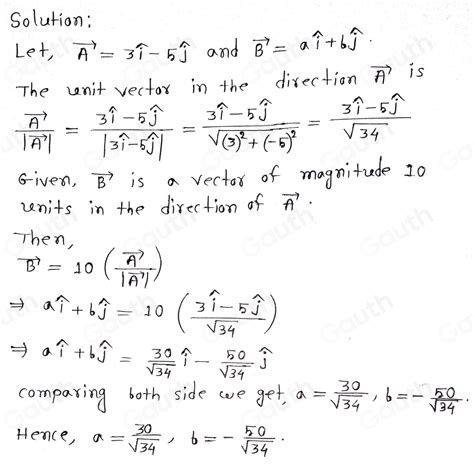 Solution:
Let, A⃗ = 3î - 5ĵ and B⃗ = aî + bĵ.
The unit vector in the direction A⃗ is
A⃗/|A⃗| = (3î - 5ĵ)/|3î - 5ĵ| = (3î - 5ĵ)/√((3)² + (-5)²) = (3î - 5ĵ)/√34
Given, B⃗ is a vector of magnitude 10
units in the direction of A⃗.
Then,
B⃗ = 10 (A⃗/|A⃗|)
⇒ aî + bĵ = 10 ((3î - 5ĵ)/√34)
⇒ aî + bĵ = 30/√34 î - 50/√34 ĵ
comparing both side we get, a = 30/√34, b = - 50/√34.
Hence, a = 30/√34, b = - 50/√34.
Gauth